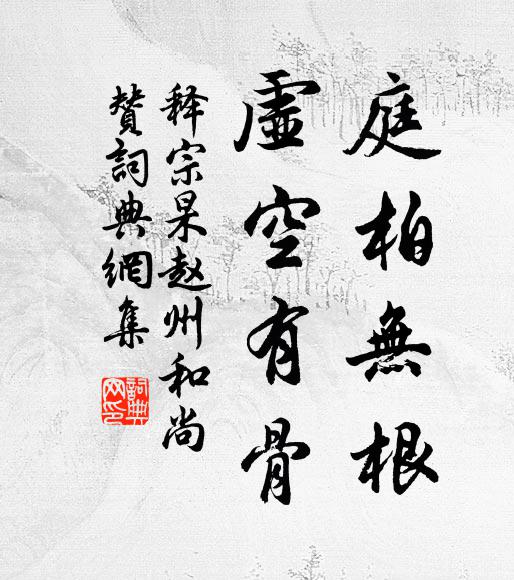 庭柏無根
虛空有骨
释宗杲赵州和尚
贊詞典網集
詞典網印